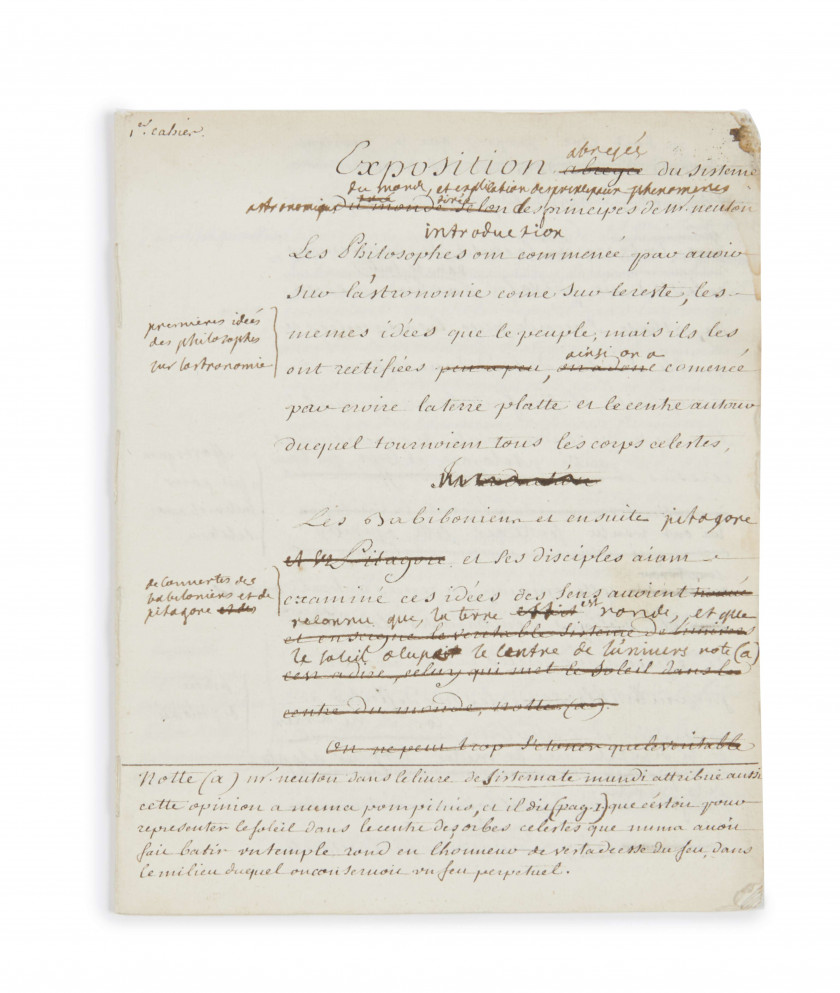 1er. cahier.
abregée
Exposition abregé du sisteme
du monde, et explication des principaux phenomenes
astronomiques du monde selon les principes de mr. neuton
introduction
Les Philosophes ont commencé par avoir
sur l'astronomie come sur le reste, les
memes idées que le peuple, mais ils les
ainsi on a
ont rectifiées peu a peu, on a donc comencé
par croire la terre platte et le centre autour
duquel tournoient tous les corps celestes,
premieres idées
des philosophes
sur l'astronomie
Introduction
Les Babiloniens et ensuite pitagore
et Pitagore et ses disciples aiant
examiné ces idées des sens avoient
reconnu que, la terre est ronde, et que
et enseigné le veritable sisteme de l'univers
le soleil ocupoit le centre de l'univers note (a)
cest adire, celuy qui met le soleil dans le
centre du monde, notte (a).
on ne peut trop s'etoner que le veritable
decouvertes des
babiloniens et de
pitagore et des
Notte (a) mr. neuton dans le livre de sistemate mundi attribue aussi
cette opinion a numa pompilius, et il dit (pag. 1) que c'étoit pour
representer le soleil dans le centre des orbes celestes que numa avoit
fait batir un temple rond en l'honneur de vesta deesse du feu, dans
le milieu duquel on conservoit un feu perpetuel.